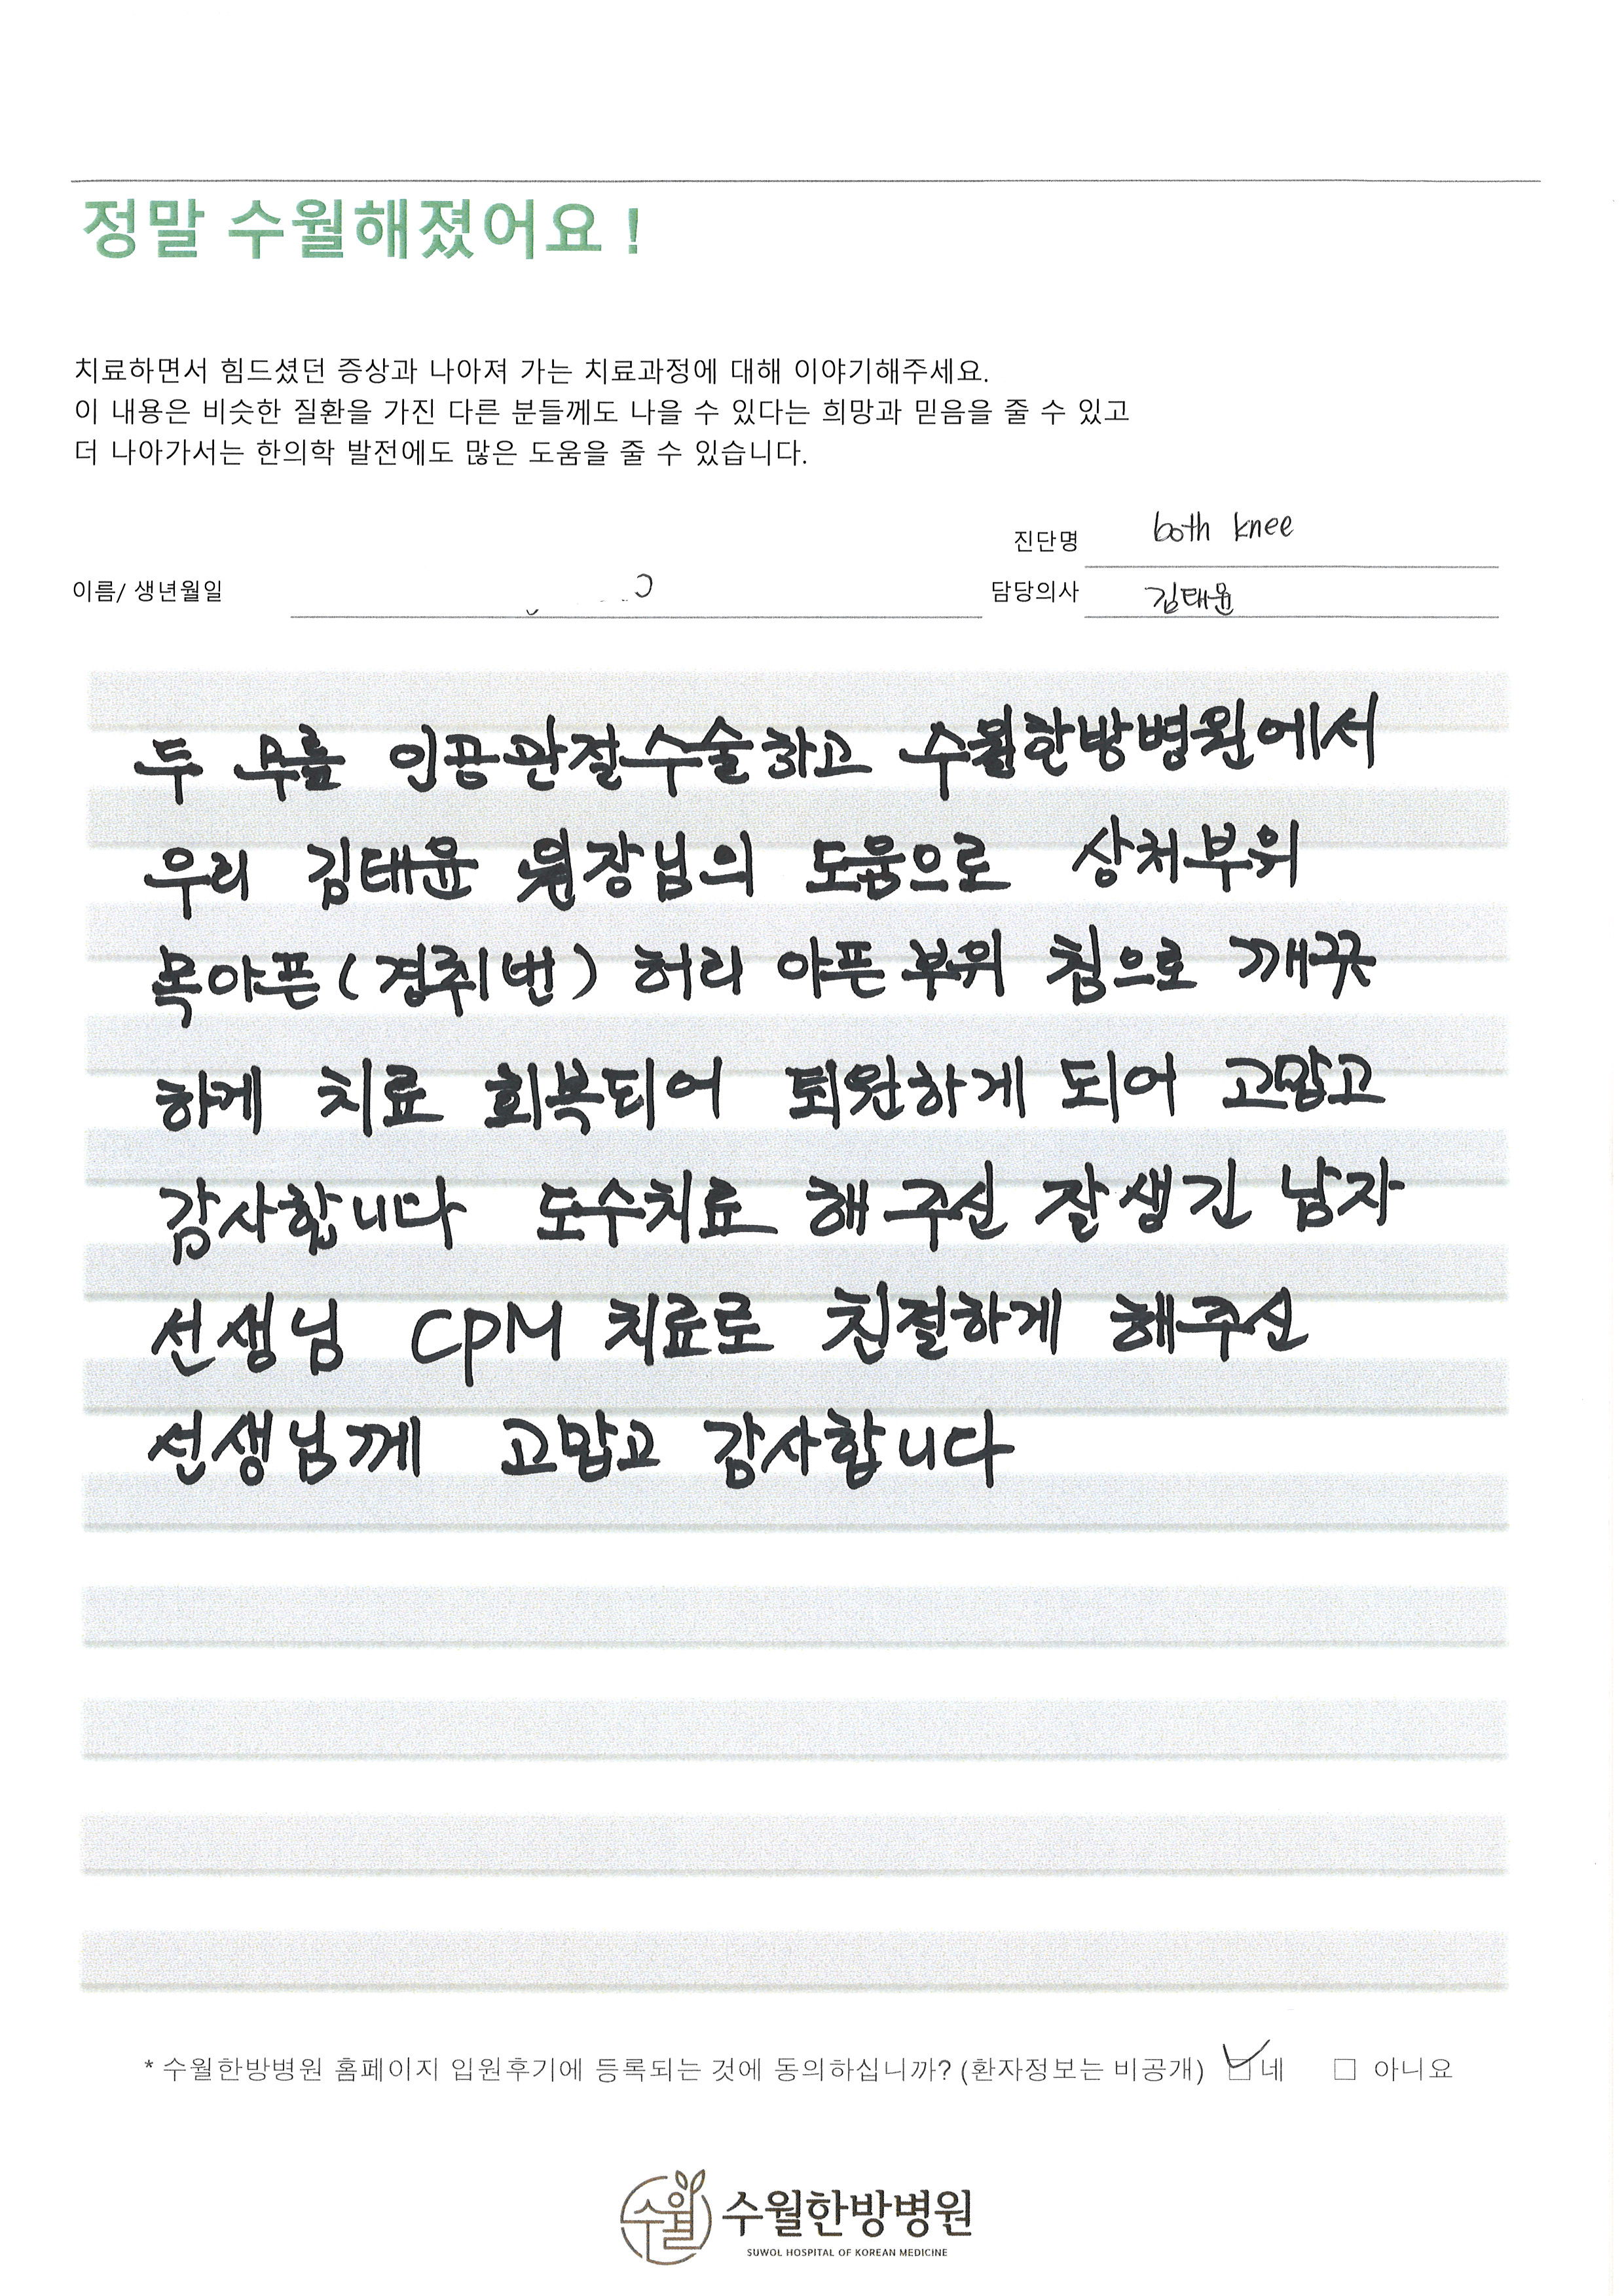 정말 수월해졌어요 !
치료하면서 힘드셨던 증상과 나아져 가는 치료과정에 대해 이야기해주세요.
이 내용은 비슷한 질환을 가진 다른 분들께도 나을 수 있다는 희망과 믿음을 줄 수 있고
더 나아가서는 한의학 발전에도 많은 도움을 줄 수 있습니다.
진단명 both knee
이름/ 생년월일 담당의사 김태윤
두 무릎 인공관절수술하고 수월한방병원에서
우리 김태윤 원장님의 도움으로 상처부위
목아픈(경취번) 허리 아픈 부위 침으로 깨끗
하게 치료 회복되어 퇴원하게 되어 고맙고
감사합니다 도수치료 해 주신 잘생긴 남자
선생님 CPM 치료로 친절하게 해주신
선생님께 고맙고 감사합니다
* 수월한방병원 홈페이지 입원후기에 등록되는 것에 동의하십니까? (환자정보는 비공개) 네 아니요
수월 수월한방병원
SUWOL HOSPITAL OF KOREAN MEDICINE